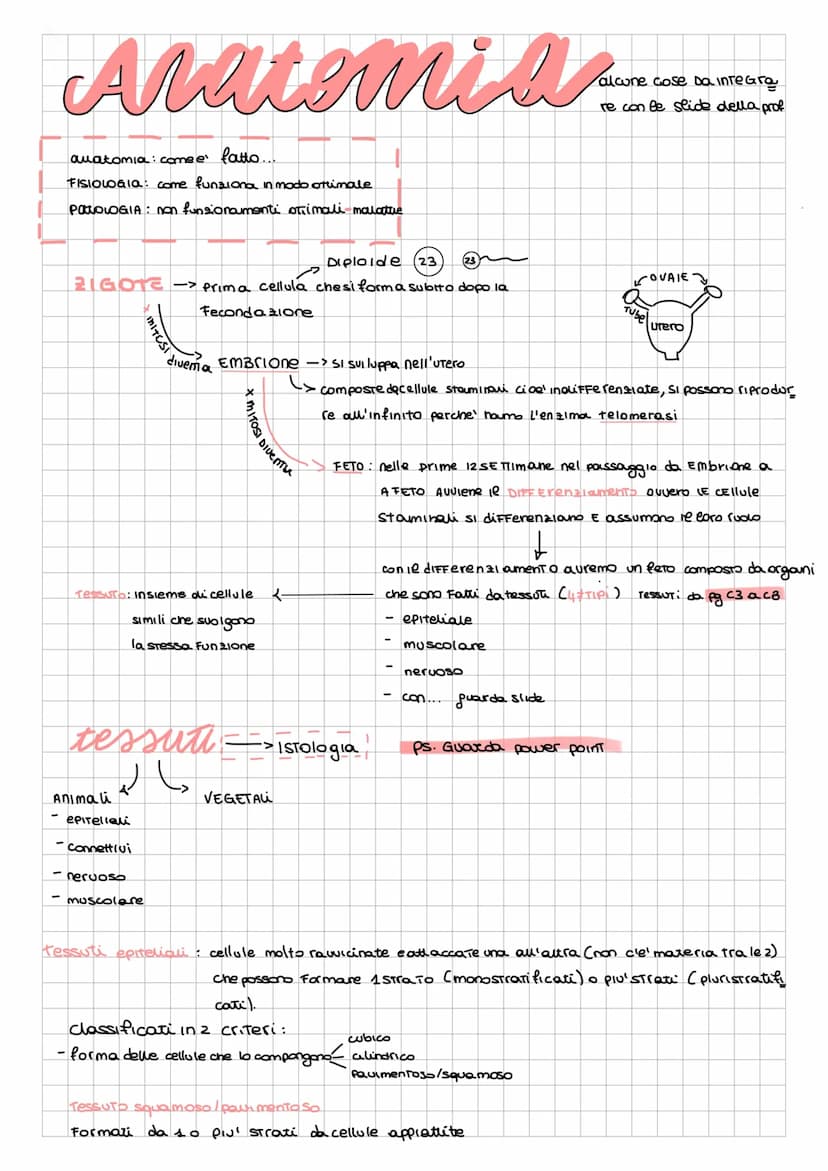 Anatomia
alcune cose da integra
re con le slide della prof
anatomia: come e' fatto...
FISIOLOGIA: come funziona in modo ottimale
PATOLOGIA: non funzionamenti ottimali-malattie
DIPLOIDE 23 23
ZIGOTE -> prima cellula che si forma subito dopo la
fecondazione
OVAIE
Tube
UTERO
x mitosi diventa EMBRIONE -> si sviluppa nell'utero
-> composte da cellule staminali cioe' indifferenziate, si possono riprodur
re all'infinito perche' hanno l'enzima telomerasi
x mitosi diventa
FETO: nelle prime 12 settimane nel passaggio da Embrione a
A FETO avviene il DIFFERENZIAMENTO ovvero le cellule
staminali si differenziano e assumono il loro ruolo
con il differenziamento avremo un feto composto da organi
Tessuto: insieme di cellule <- che sono fatti da tessuti (4 ≠ TIPI) Tessuti da pg C3 a C8
simili che svolgono - epiteliale
la stessa funzione - muscolare
- nervoso
- con... guarda slide
tessuti -> Istologia ps. Guarda power point
Animali VEGETALI
- epiteliali
- connettivi
- nervoso
- muscolare
tessuti epiteliali: cellule molto ravvicinate e attaccate una all'altra (non c'e' materia tra le 2)
che possono formare 1 strato (monostratificati) o piu' strati (pluristratifi
cati).
Classificati in 2 criteri:
cubico
- forma delle cellule che lo compongono cilindrico
pavimentoso/squamoso
Tessuto squamoso/pavimentoso
Formati da 1 o piu' strati da cellule appiattite